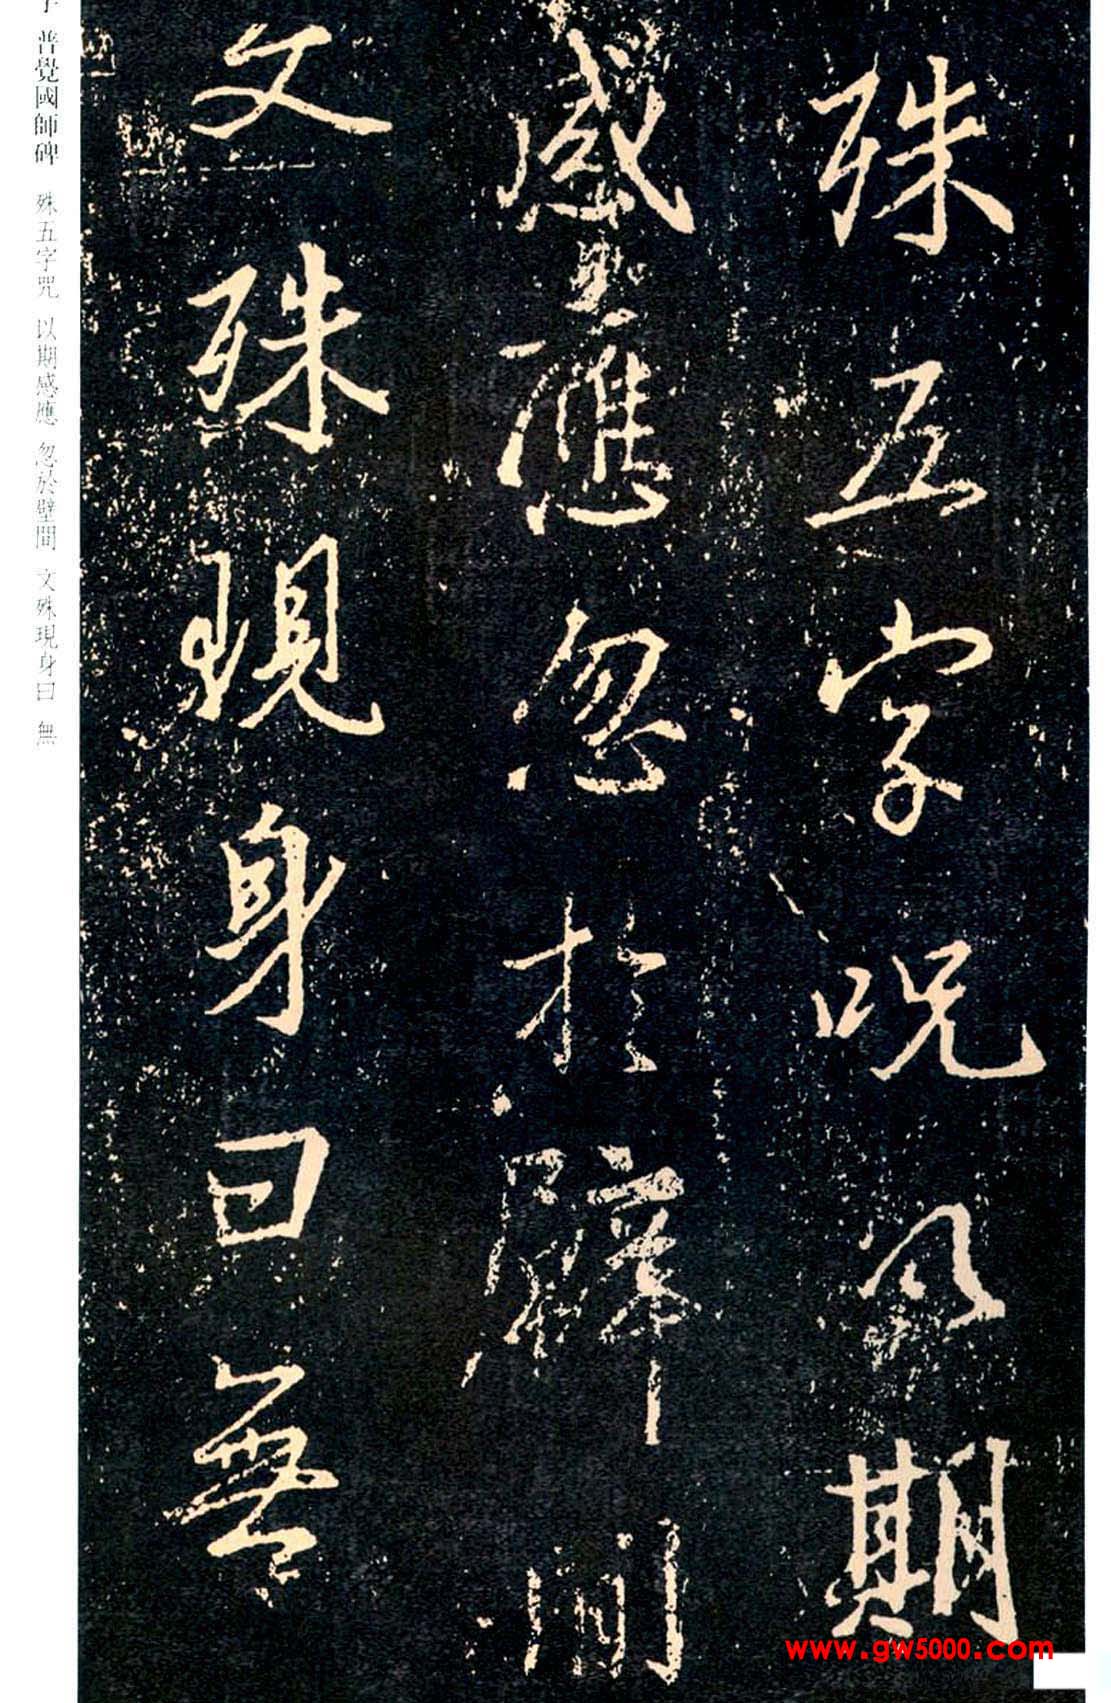 殊五字呪以期
感應忽於壁間
文殊現身曰無
普覺國師碑 殊五字咒 以期感應 忽於壁間 文殊現身曰 無
www.gw5000.com